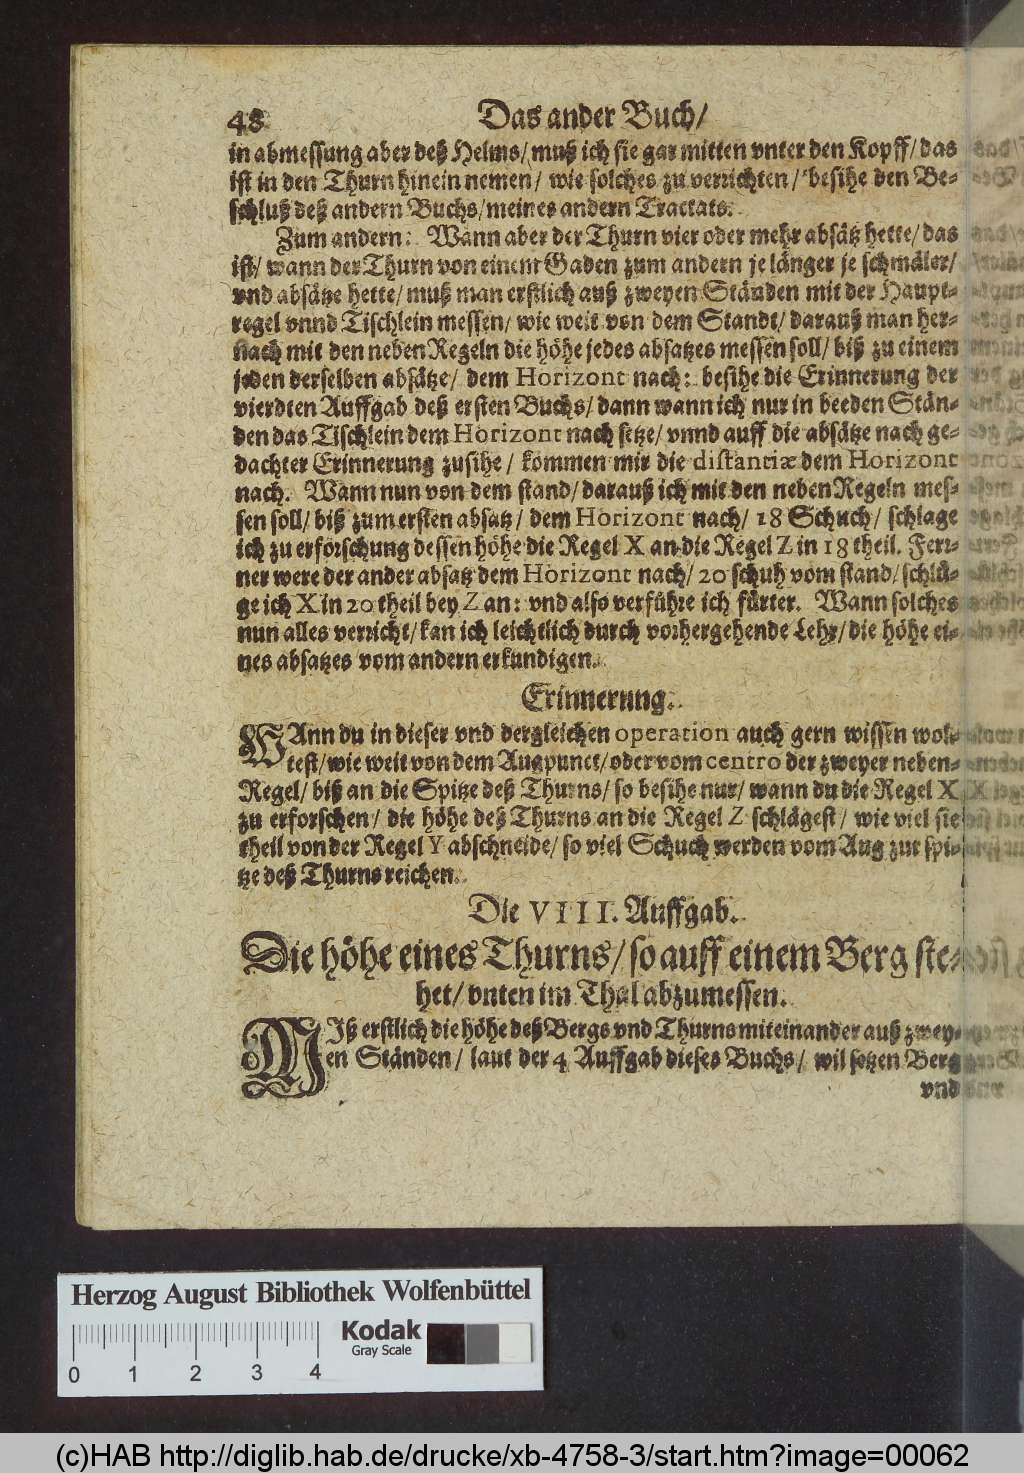 48 Das ander Buch/
in abmessung aber deß Helms/ muß ich sie gar mitten vnter den Kopff/ das
ist in den Thurn hinein nemen/ wie solches zu verrichten/ besihe den Be-
schluß deß andern Buchs/ meines andern Tractats.
Zum andern: Wann aber der Thurn vier oder mehr absätz hette/ das
ist/ wann der Thurn von einem Gaden zum andern je länger je schmäler/
vnd absätze hette/ muß man erstlich auß zweyen Ständen mit der Haupt-
regel vnnd Tischlein messen/ wie weit von dem Standt/ darauß man her-
nach mit den neben Regeln die höhe jedes absatzes messen soll/ biß zu einem
jeden derselben absätze/ dem Horizont nach: besihe die Erinnerung der
vierdten Auffgab deß ersten Buchs/ dann wann ich nur in beeden Stän-
den das Tischlein dem Horizont nach setze/ vnnd auff die absätze nach ge-
dachter Erinnerung zusihe/ kommen mir die distantiæ dem Horizont
nach. Wann nun von dem stand/ darauß ich mit den neben Regeln mes-
sen soll/ biß zum ersten absatz/ dem Horizont nach/ 18 Schuch/ schlage
ich zu erforschung dessen höhe die Regel X an die Regel Z in 18 theil. Fer-
ner were der ander absatz dem Horizont nach/ 20 schuh vom stand/ schlü-
ge ich X in 20 theil bey Z an: vnd also verführe ich fürter. Wann solches
nun alles verricht/ kan ich leichtlich durch vorhergehende Lehr/ die höhe ei-
nes absatzes vom andern erkundigen.
Erinnerung.
WAnn du in dieser vnd dergleichen operation auch gern wissen wol-
test/ wie weit von dem Augpunct/ oder vom centro der zweyer neben-
Regel/ biß an die Spitze deß Thurns/ so besihe nur/ wann du die Regel X
zu erforschen/ die höhe deß Thurns an die Regel Z schlägest/ wie viel sie
theil von der Regel Y abschneide/ so viel Schuch werden vom Aug zur spi-
tze deß Thurns reichen.
Die VIII. Auffgab.
Die höhe eines Thurns/ so auff einem Berg ste-
het/ vnten im Thal abzumessen.
MIß erstlich die höhe deß Bergs vnd Thurns miteinander auß zwey-
en Ständen/ laut der 4 Auffgab dieses Buchs/ wil setzen Berg
vnd
Herzog August Bibliothek Wolfenbüttel
Kodak
Gray Scale
0 1 2 3 4
(c)HAB http://diglib.hab.de/drucke/xb-4758-3/start.htm?image=00062